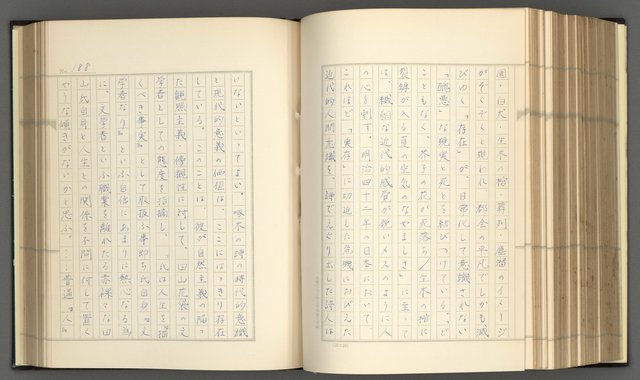 囲・白犬・生木の棺・葬列・墓畓のイメージ
がぞくぞくと現われ、都会の平凡でしかも滅
びゆく「存在」が、日常化して意識されない
「醜悪」な現実と死とを結びつけている。ど
こともなく、芥子の花が死落ち／生木の棺に
裂縁が入る夏の空気のなやましさ」に至って
は、繊細な近代的感覚が鋭いメスのように人
の心を刺す。明治四十二年の日本において、
これほど「実存」に切迫した危機におびえた
近代的人間意識を、詩でえぐり出した詩人は
No. 188
いないといってよい。啄木の詩の時代的意識
と現代的意義の価値は、ここにはっきり存在
している。このことは、彼が自然主義の陥っ
た観照主義・傍観性に対して、田山花袋の文
学者としての態度を指摘し、「氏は人生を『描
くべき事実』として取扱ふ事即ち氏自身『文
学者なり』といふ自信にあまりに熱心なる為
に、文学者といふ職業を離れたる赤裸々な田
山氏自身と人生との関係を不問に付して置く
やうな傾きがないかと思ふ。……普通『人』